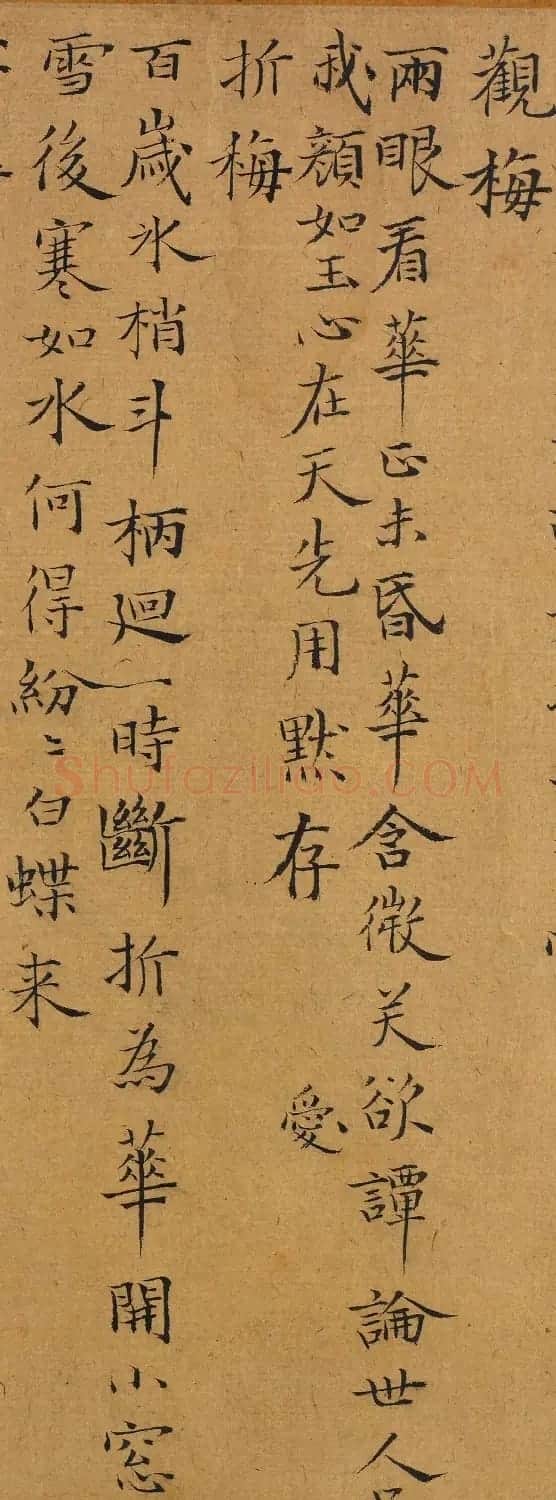 觀梅
兩眼看華正未昏華含微关欲譚論世人
我顏如玉心在天先用默存 愛
折梅
百歲氷梢斗柄迴一時斷折為華開小窓
雪後寒如水何得紛〻白蝶来
Shufaziliao.COM